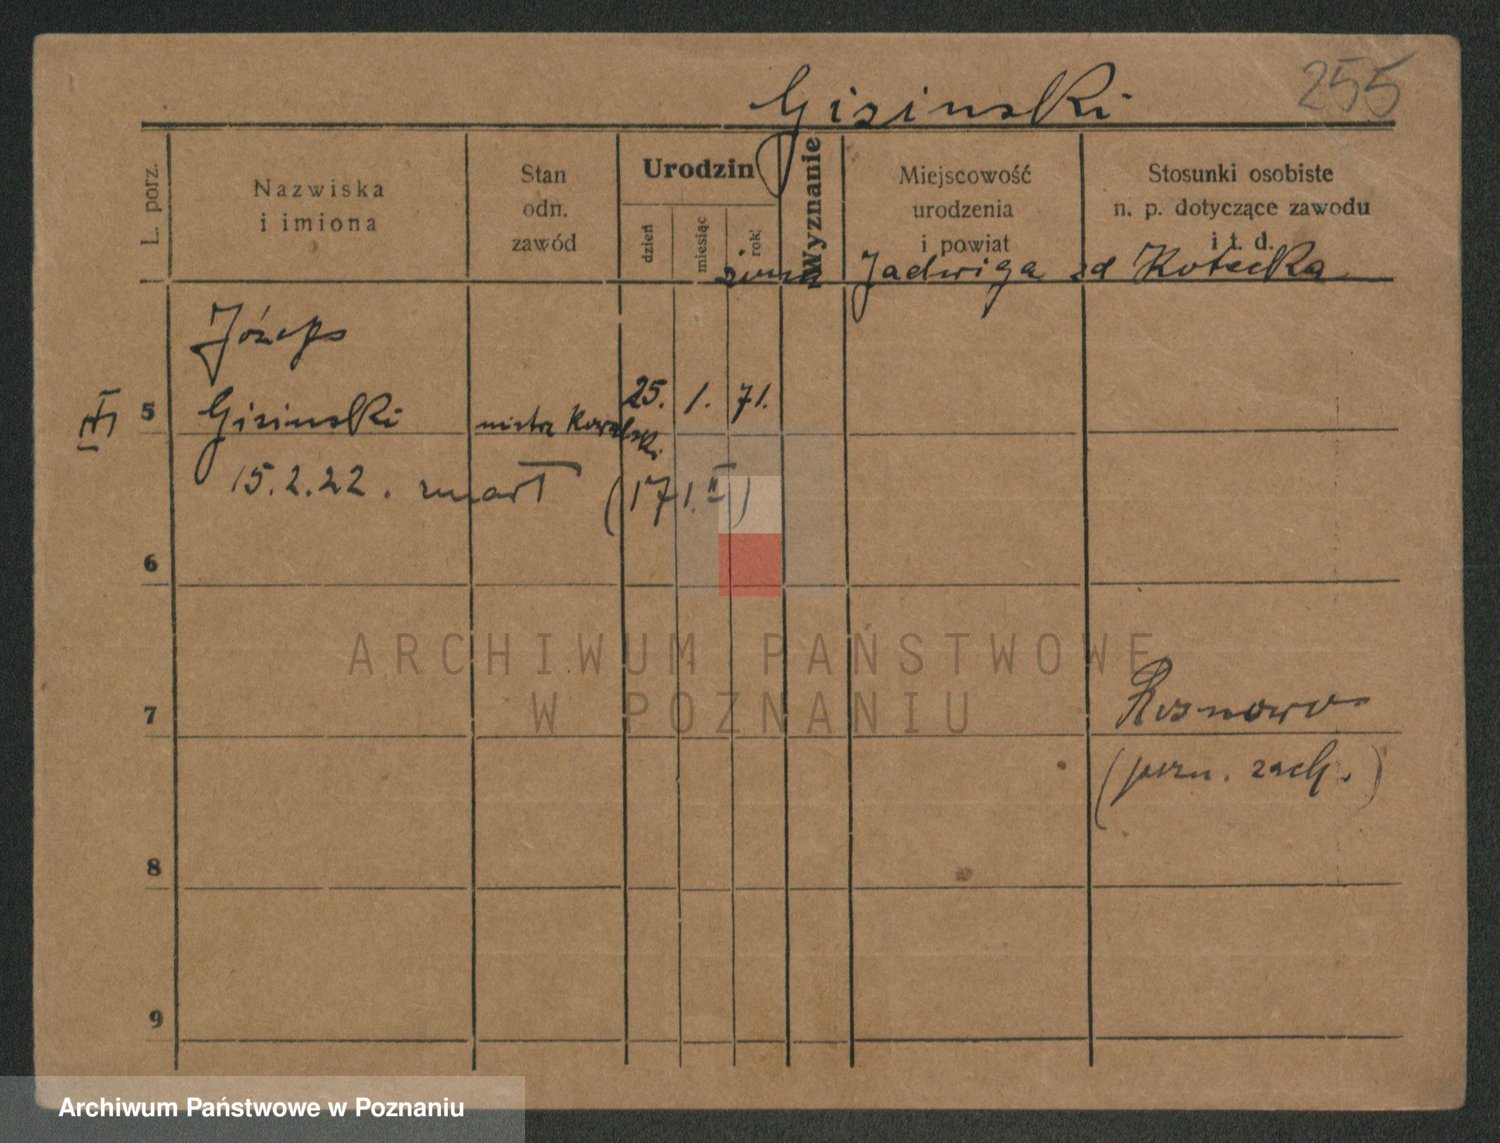 255
Gisinski
L. porz.
Nazwiska
i imiona
Stan
odn.
zawód
Urodzin
dzień
miesiąc
rok
Wyznanie
Miejscowość
urodzenia
i powiat
Stosunki osobiste
n. p. dotyczące zawodu
i t. d.
żona Jadwiga zd Kotecka
Józef
III 5 Gisinski mistrz Kowalski 25. 1. 71.
15.2.22. zmarł (171.II)
6
7 Rosnowo
(pozn. zach.)
8
9
ARCHIWUM PAŃSTWOWE
W POZNANIU
Archiwum Państwowe w Poznaniu